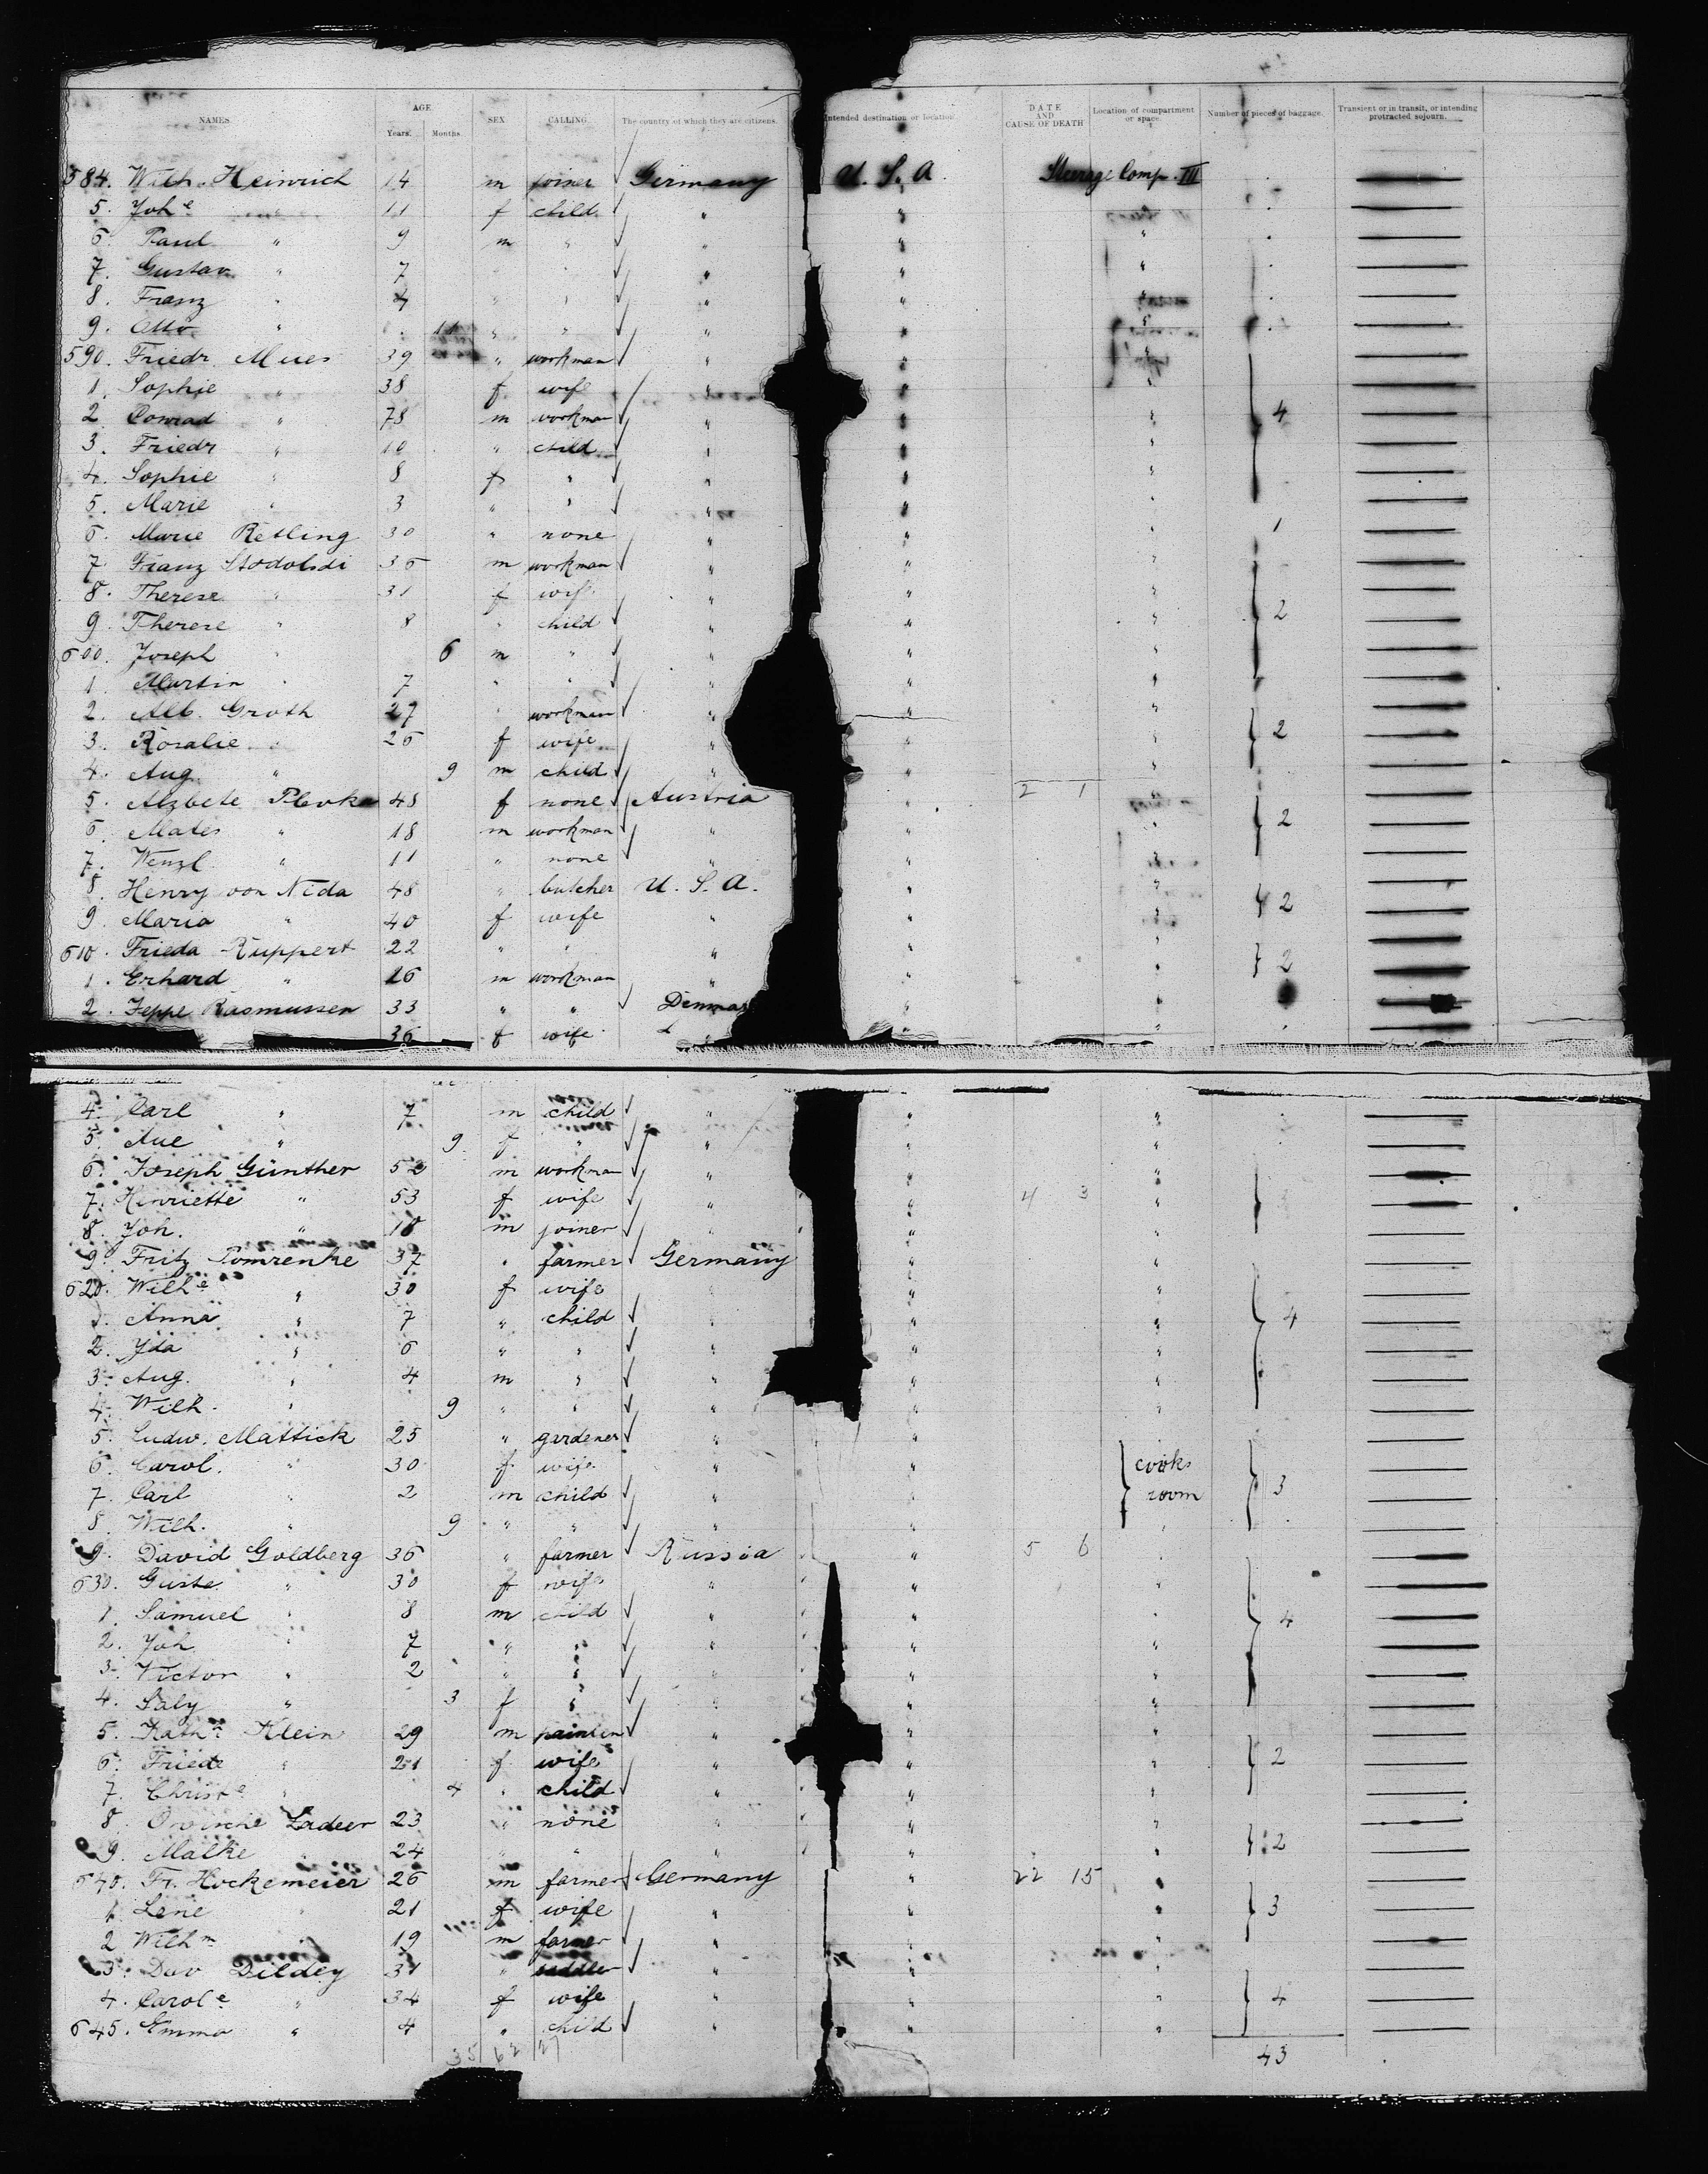 NAMES. AGE. Years. Months. SEX CALLING. The country of which they are citizens. Intended destination or location. DATE AND CAUSE OF DEATH Location of compartment or space. Number of pieces of baggage. Transient or in transit, or intending protracted sojourn.
584. Wilh. Heinrich 14 m joiner Germany U. S. A. Steerage Comp. III
5. Joh e " 11 f child " "
6. Paul " 9 m " " " "
7. Gustav " 7 " " " " "
8. Franz " 4 " " " "
9. Otto " 11 " " " " "
590. Friedr. Mues 39 " workman " " "
1. Sophie " 38 f wife " " "
2. Conrad " 78 m workman " " " 4
3. Friedr " 10 " child " " "
4. Sophie " 8 f " " " "
5. Marie " 3 " " " " "
6. Marie Retling 30 " none " " " 1
7. Franz Stodolsdi 36 m workman " " "
8. Therese " 31 f wife " " "
9. Therese " 8 " child " " " 2
600. Joseph " 6 m " " " "
1. Martin " 7 " " " " "
2. Alb. Groth 27 " workman " " "
3. Rosalie " 26 f wife " " " 2
4. Aug. " 9 m child " " "
5. Alzbete 48 f none Austria " 2 1
6. Mates " 18 m workman " " " 2
7. Wenzl " 11 " none " " "
8. Henry von Nida 48 " butcher U. S. A. " "
9. Maria " 40 f wife " " " 2
610. Frieda Ruppert 22 " " " " "
1. Erhard " 16 m workman " " " 2
2. Jeppe Rasmussen 33 " " Denmar " "
36 f wife " " "
4. Carl " 7 m child " " "
5. Ane " 9 f " " " "
6. Joseph Günther 52 m workman " " "
7. Henriette " 53 f wife " " 4 3 "
8. Joh. " 18 m joiner " " "
9. Fritz Pomrenke 37 " farmer Germany " "
620. Wilh e " 30 f wife " " "
1. Anna " 7 " child " " " 4
2. Yda " 6 " " " " "
3. Aug. " 4 m " " " "
4. Wilh. " 9 " " " " "
5. Ludw. Mattick 25 " gardener " " "
6. Carol. " 30 f wife " " cooks
7. Carl " 2 m child " " room 3
8. Wilh. " 9 " " " " "
9. David Goldberg 36 " farmer Russia " 5 6 "
630. Guste " 30 f wife " " "
1. Samuel " 8 m child " " " 4
2. Joh " 7 " " " " "
3. Victor " 2 " " " " "
4. Saly " 3 f " " " "
5. Klein 29 m " " "
6. Friede " 21 f wife " " " 2
7. Christ e " 4 " child " " "
8. 23 " none " " "
9. Malke " 24 " " " " " 2
640. Fr. Hockemeier 26 m farmer Germany " 22 15 "
1. Lene " 21 f wife " " " 3
2. Wilh m 19 m farmer " " "
3. Dav Dildey 31 " saddler " " "
4. Carol e " 34 f wife " " " 4
645. Emma " 4 " child " " "
35 62 27 43